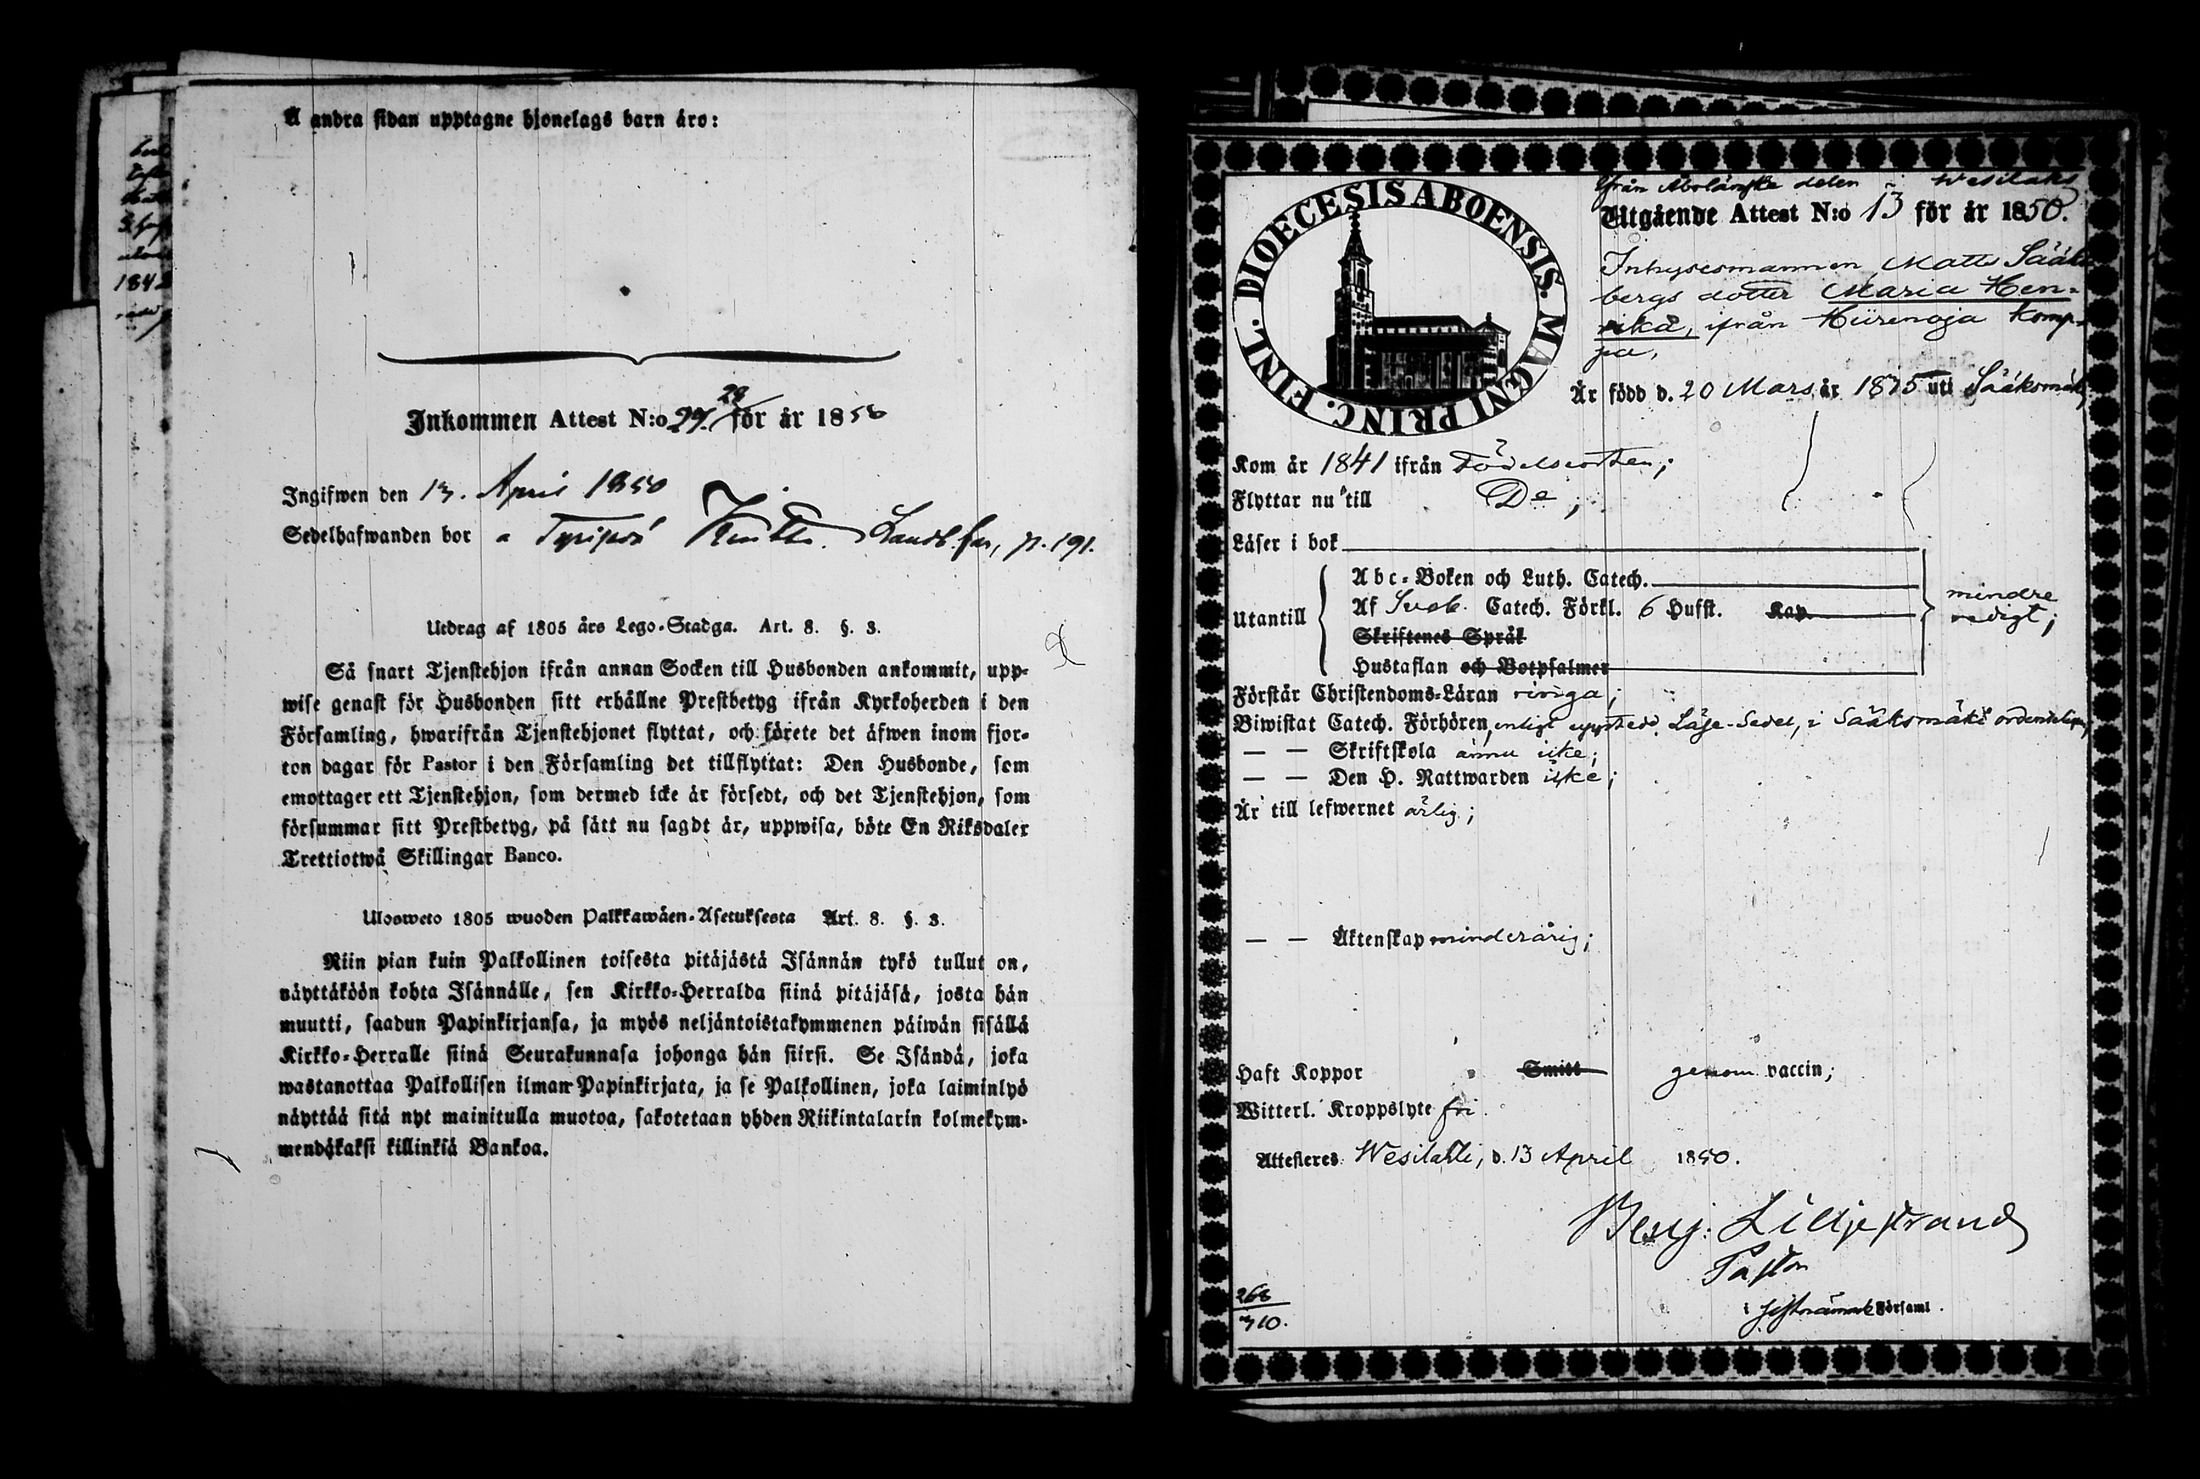 Å andra sidan upptagne hjonelags barn äro:
Inkommen Attest N:o 29. 28 för år 1850
Ingifwen den 13. April 1850
Sedelhafwanden bor a
p. 191.
Utdrag af 1805 års Lego-Stadga. Art. 8. §. 3.
Så snart Tjenstehjon ifrån annan Socken till Husbonden ankommit, upp-
wise genast för Husbonden sitt erhållne Prestbetyg ifrån Kyrkoherden i den
Församling, hwarifrån Tjenstehjonet flyttat, och förete det äfwen inom fjor-
ton dagar för Pastor i den Församling det tillflyttat: Den Husbonde, som
emottager ett Tjenstehjon, som dermed icke är försedt, och det Tjenstehjon, som
försummar sitt Prestbetyg, på sätt nu sagdt är, uppwisa, böte En Riksdaler
Trettiotwå Skillingar Banco.
Ulosweto 1805 wuoden Palkkawäen-Asetuksesta Art. 8. §. 3.
Niin pian kuin Palkollinen toisesta pitäjästä Isännän tykö tullut on,
näyttäköön kohta Isännälle, sen Kirkko-Herralda siinä pitäjäsä, josta hän
muutti, saadun Papinkirjansa, ja myös neljäntoistakymmenen päiwän sisällä
Kirkko-Herralle siinä Seurakunnasa johonga hän siirsi. Se Isändä, joka
wastanottaa Palkollisen ilman Papinkirjata, ja se Palkollinen, joka laiminlyö
näyttää sitä nyt mainitulla muotoa, sakotetaan yhden Riikintalarin kolmekym-
mendäkaksi killinkiä Bankoa.
1842
DIOECESIS ABOENSIS. MAGNI PRINC. FINL.
ifrån Åbolänske delen i Wesilaks
Utgående Attest N:o 13 för år 1850.
Inhysesmannen Matts Sääks
bergs dotter Maria Hen-
rika, ifrån Hiirenoja Komp-
pa,
Är född d. 20 Mars år 1835 uti Sääksmäki,
Kom år 1841 ifrån Födelseorten;
Flyttar nu till Do;
Läser i bok
Utantill
Abc-Boken och Luth. Catech.
Af Sveb. Catech. Förkl. 6 Hufst. Kap.
Skriftenes Språk
Hustaflan och Botpsalmer
mindre
redigt;
Förstår Christendoms-Läran ringa;
Biwistat Catech. Förhören, enligt Läse-Sedel, i Sääksmäki ordentligen,
— — Skriftskola ännu icke;
— — Den H. Nattwarden icke;
Är till lefwernet ärlig;
— — Äktenskap minderårig;
Haft Koppor Smitt genom vaccin;
Witterl. Kroppslyte fri
Attesteres Wesilahti, d. 13 April 1850.
Benj. Liljestrand
Pastor
i Församl.
268
310.